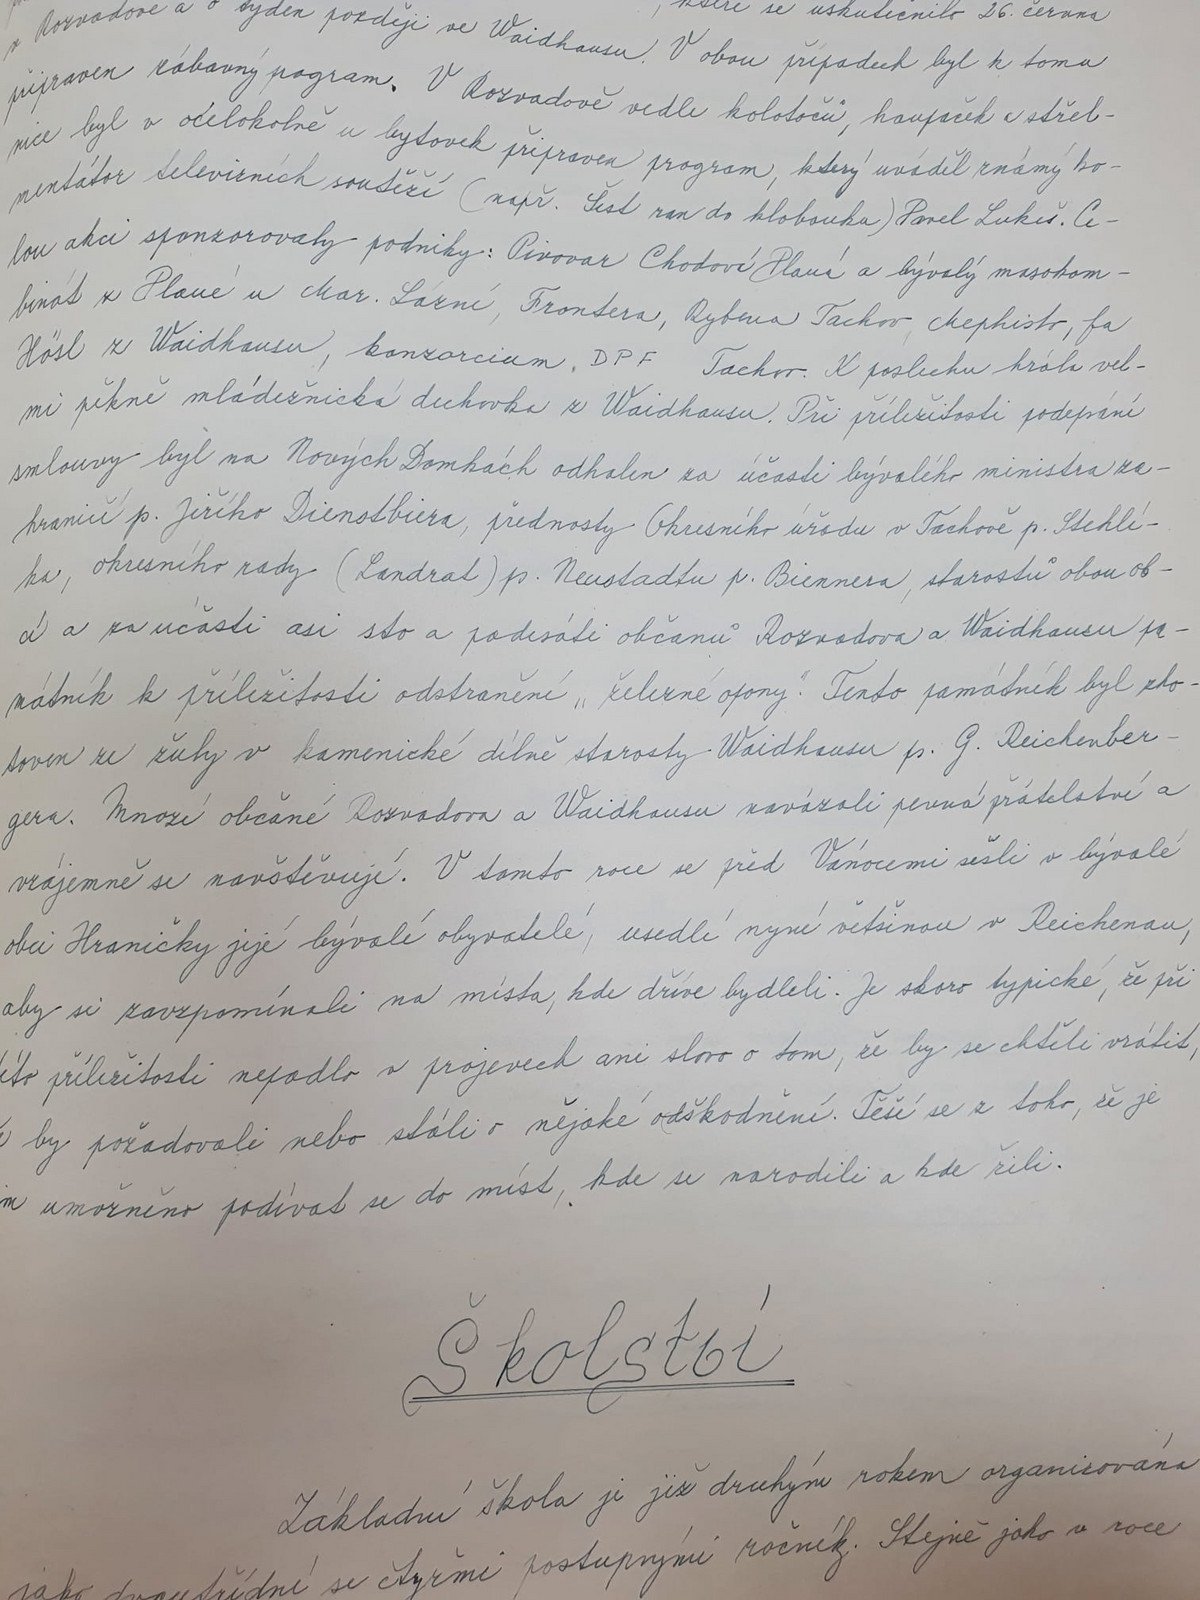 , které se uskutečnilo 26. června
v Rozvadově a o týden později ve Waidhausu. V obou případech byl k tomu
připraven zábavný pogram. V Rozvadově vedle kolotočů, houpaček a střel-
nice byl v ocelokolně u bytovek připraven program, který uváděl známý ko-
mentátor televizních soutěží (např. Šest ran do klobouku) Pavel Lukeš. Ce-
lou akci sponzorovaly podniky: Pivovar Chodová Planá a bývalý masokom-
binát z Plané u Mar. Lázní, Frontera, Rybena Tachov, Mephisto, fa
Hösl z Waidhausu, konzorcium, DPF Tachov. K poslechu hrála vel-
mi pěkně mládežnická dechovka z Waidhausu. Při příležitosti podepsání
smlouvy byl na Nových Domkách odhalen za účasti bývalého ministra za-
hraničí p. Jiřího Dienstbiera, přednosty Okresního úřadu v Tachově p. Stehlí-
ka, okresního rady (Landrat) p. Neustadtu p. Biennera, starostů obou ob-
cí a za účasti asi sto a padesáti občanů Rozvadova a Waidhausu pa-
mátník k příležitosti odstranění „železné opony". Tento památník byl zho-
toven ze žuly v kamenické dílně starosty Waidhausu p. G. Reichenber-
gera. Mnozí občané Rozvadova a Waidhausu navázali pevná přátelství a
vzájemně se navštěvují. V tomto roce se před Vánocemi sešli v bývalé
obci Hraničky její bývalí obyvatelé, usedlí nyní většinou v Reichenau,
aby si zavzpomínali na místa, kde dříve bydleli. Je skoro typické, že při
této příležitosti nepadlo v projevech ani slovo o tom, že by se chtěli vrátit,
by požadovali nebo stáli o nějaké odškodnění. Těší se z toho, že je
jim umožněno podívat se do míst, kde se narodili a kde žili.
Školství
Základní škola je již druhým rokem organizována
jako dvoutřídní se čtyřmi postupnými ročníky. Stejně jako v roce